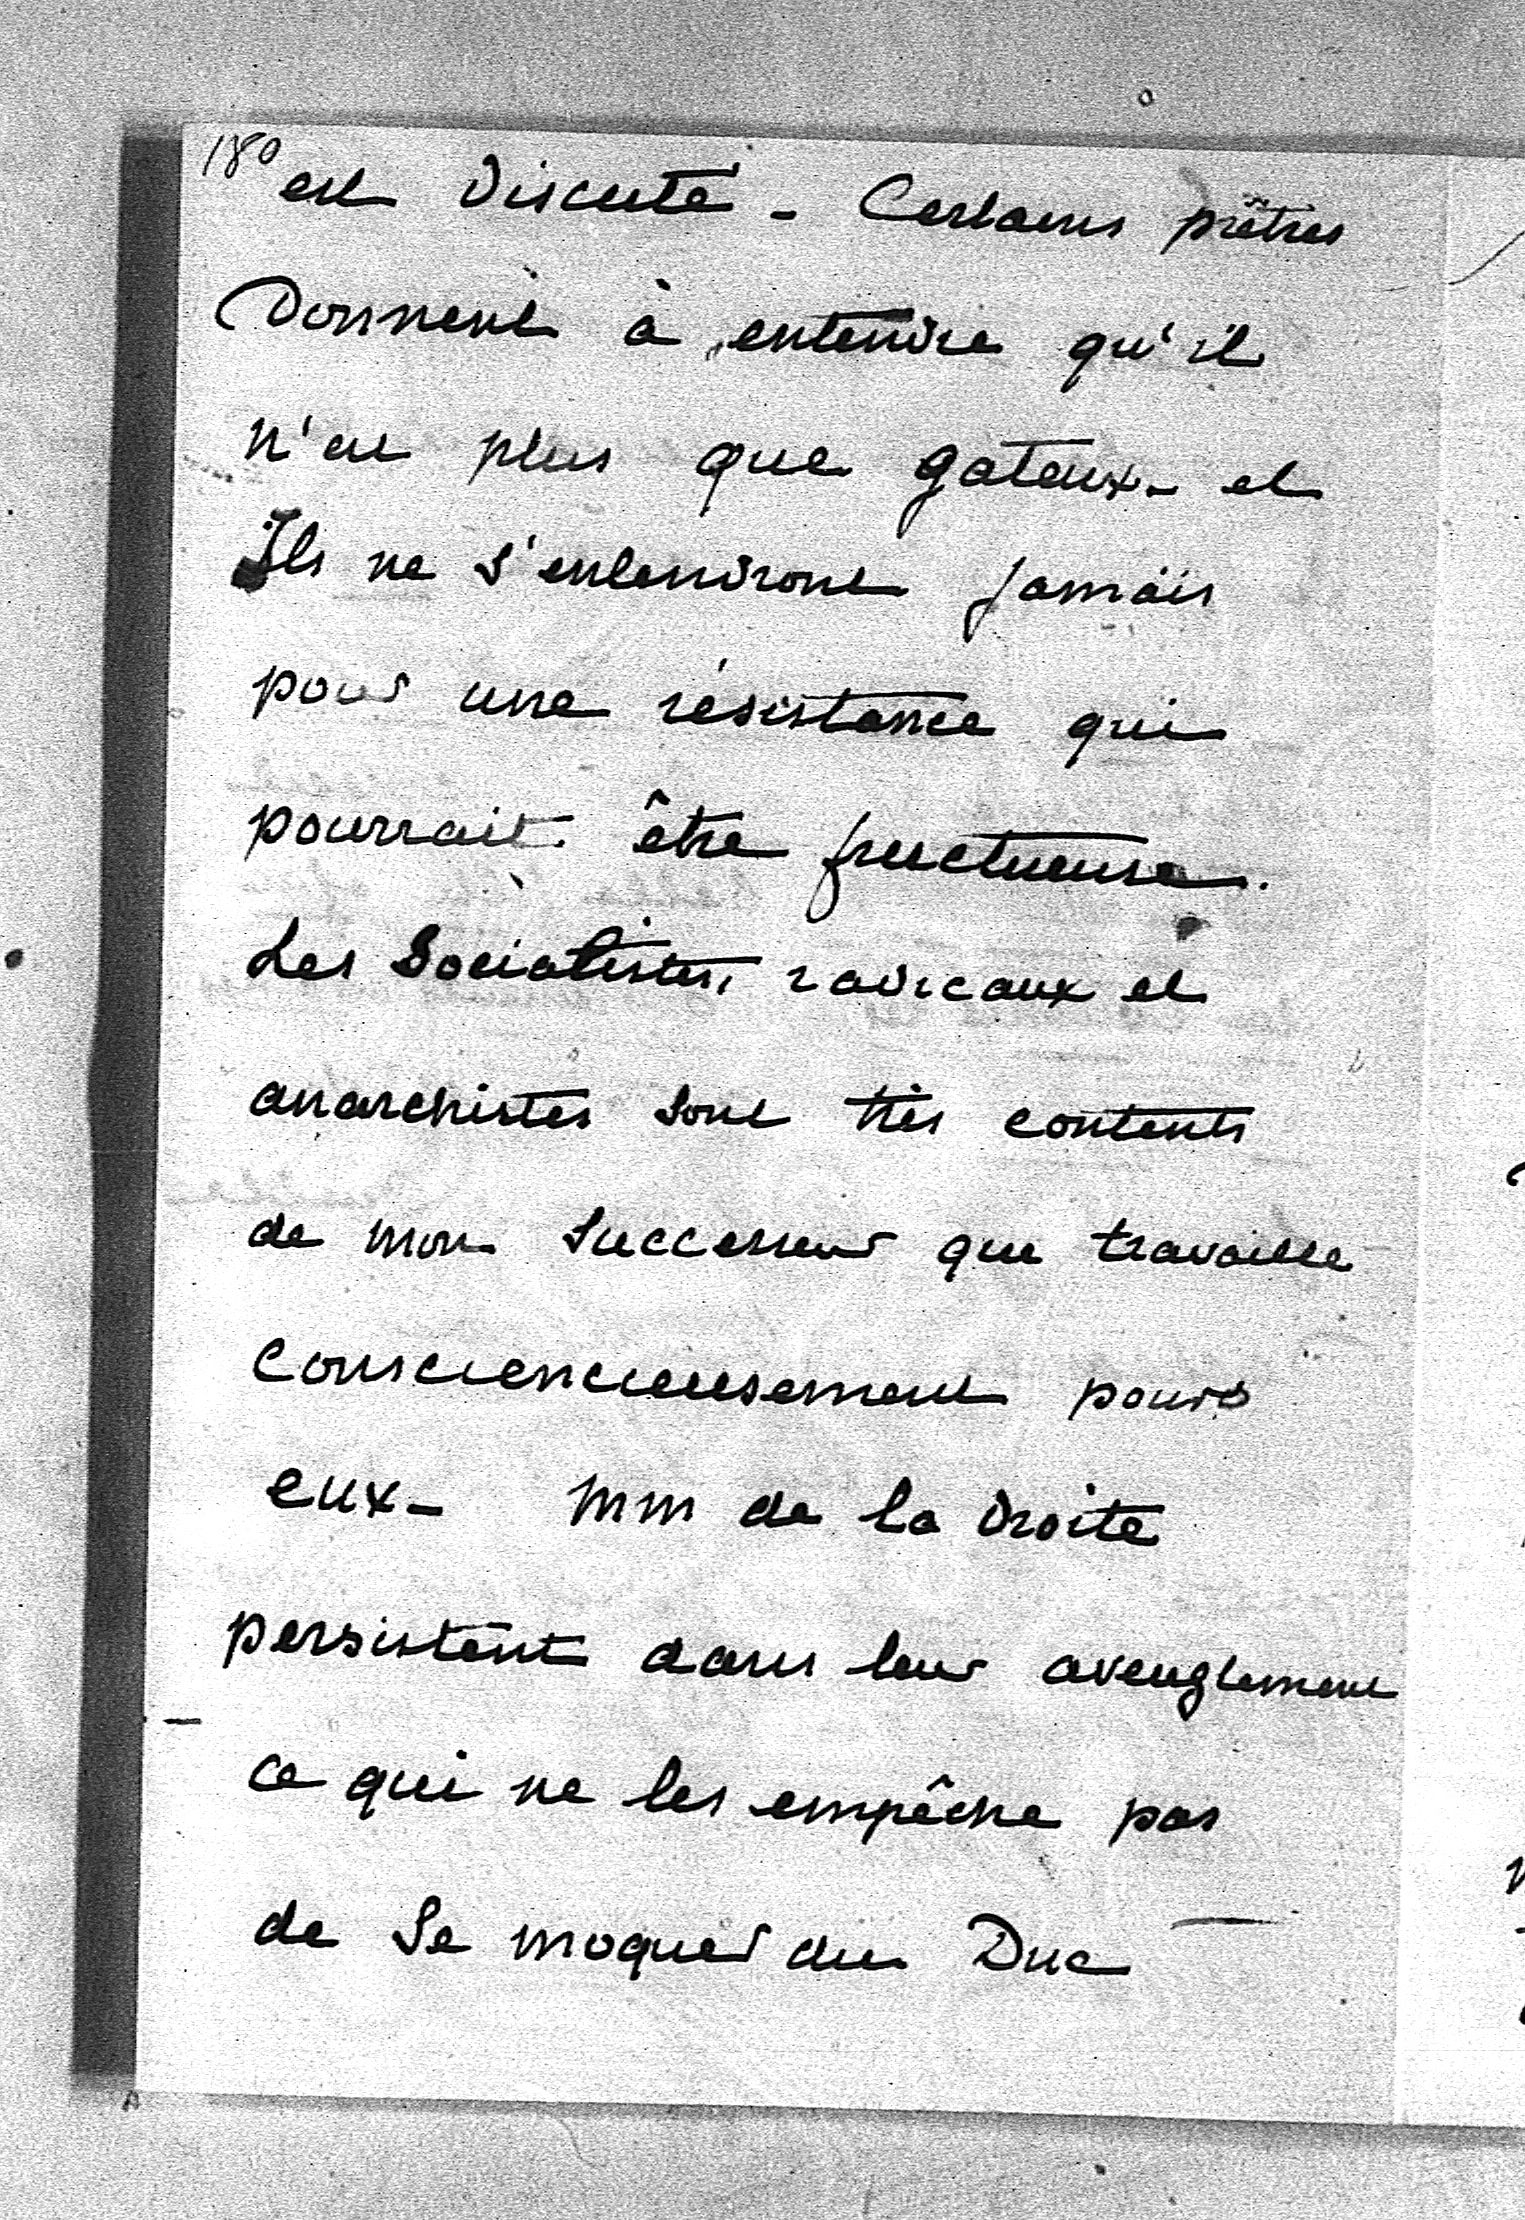 180
est discuté - Certains prêtres
donnent à entendre qu'il
n'est plus que gateux - et
Ils ne s'entendront jamais
pour une résistance qui
pourrait être fructueuse.
Les Socialistes, radicaux et
anarchistes sont très contents
de mon Successeur que travaille
consciencieusement pour
eux - MM de la droite
persistent dans leur aveuglement
ce qui ne les empêche pas
de se moquer du Duc